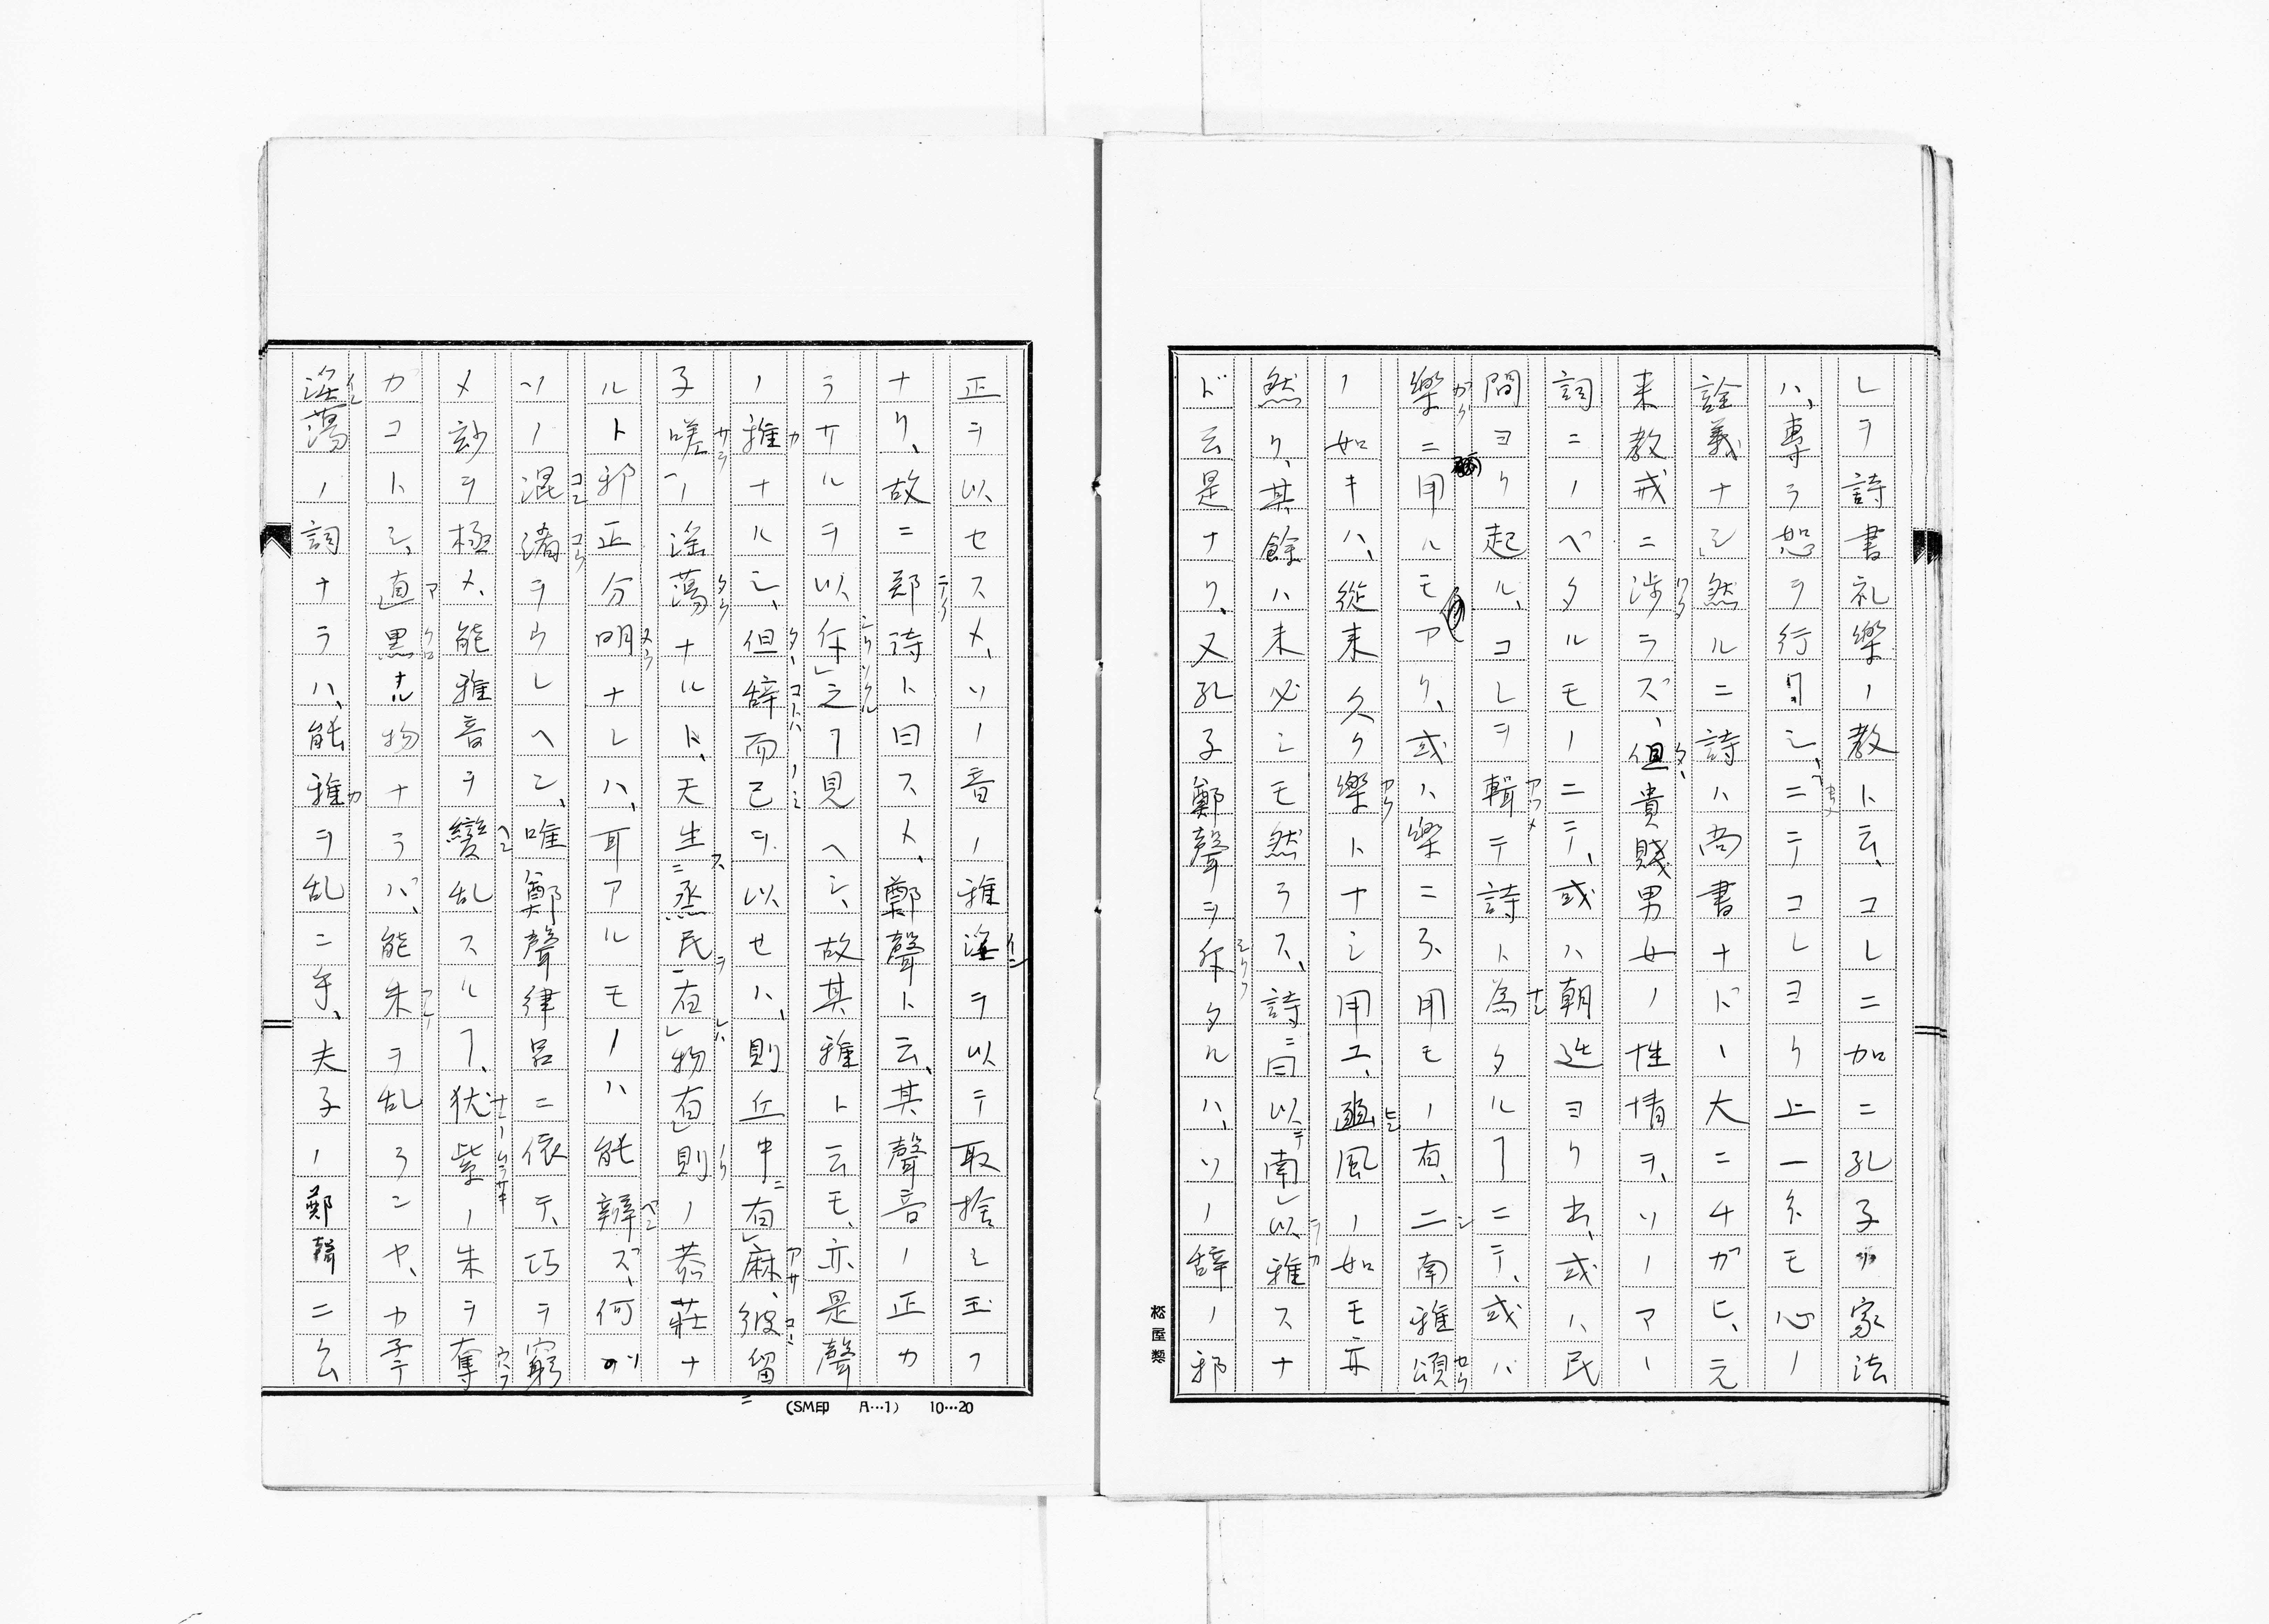 レヲ詩書礼樂ノ教ト云、コレニ加ニ孔子カ家法
ハ、專ラ恕ヲ行冃シ、ニテコレヨリ上一ネモ心ノ
詮義ナシ、然ルニ詩ハ尚書ナドノ大ニチガヒ、元
来教戒ニ涉ラズ、但貴賤男女ノ性情ヲ、ソノアノ
詞ニノベタルモノニテ、或ハ朝廷ヨリ出、或ハ民
間ヨリ起ル、コレヲ輯テ詩ト為タルヿニテ、或ハ
樂ニ用ルモアリ、或ハ樂ニ不用モノ有、二南雅頌
ノ如キハ、從来久ク樂トナシ用ユ、豳風ノ如モ亦
然リ、其餘ハ未必シモ然ラス、詩ニ曰以テ南以雅スナ
ド云是ナリ、又孔子鄭聲ヲ斥タルハ、ソノ辞ノ邪
正ヲ以セスメ、ソノ音ノ雅淫ヲ以テ取捨シ玉フ
ナリ、故ニ鄭詩ト曰スメ、鄭聲ト云、其聲音ノ正カ
ラサルヲ以斥之ヿ見ヘシ、故其雅ト云モ、亦是聲
ノ雅ナルシ、但辞而己ヲ以セハ、則丘中有麻、彼留
子嗟ノ淫蕩ナルト、天生蒸民有物有則ノ恭莊ナ
ルト邪正分明ナレハ、耳アルモノハ能辯ズ、何ソ
ソノ混淆ヲウレヘン、唯鄭聲律呂ニ依テ、巧ヲ窮
メ玅ヲ極メ、能雅音ヲ變乱スルヿ、犹紫ノ朱ヲ奪
カコトシ、直黒キ物ナラバ、能朱ヲ乱ランヤ、カ子テ
淫蕩ノ詞ナラハ、能雅ヲ乱ニ乎、夫子ノ鄭聲ニ么
松屋製
(SM印 A…1) 10…20